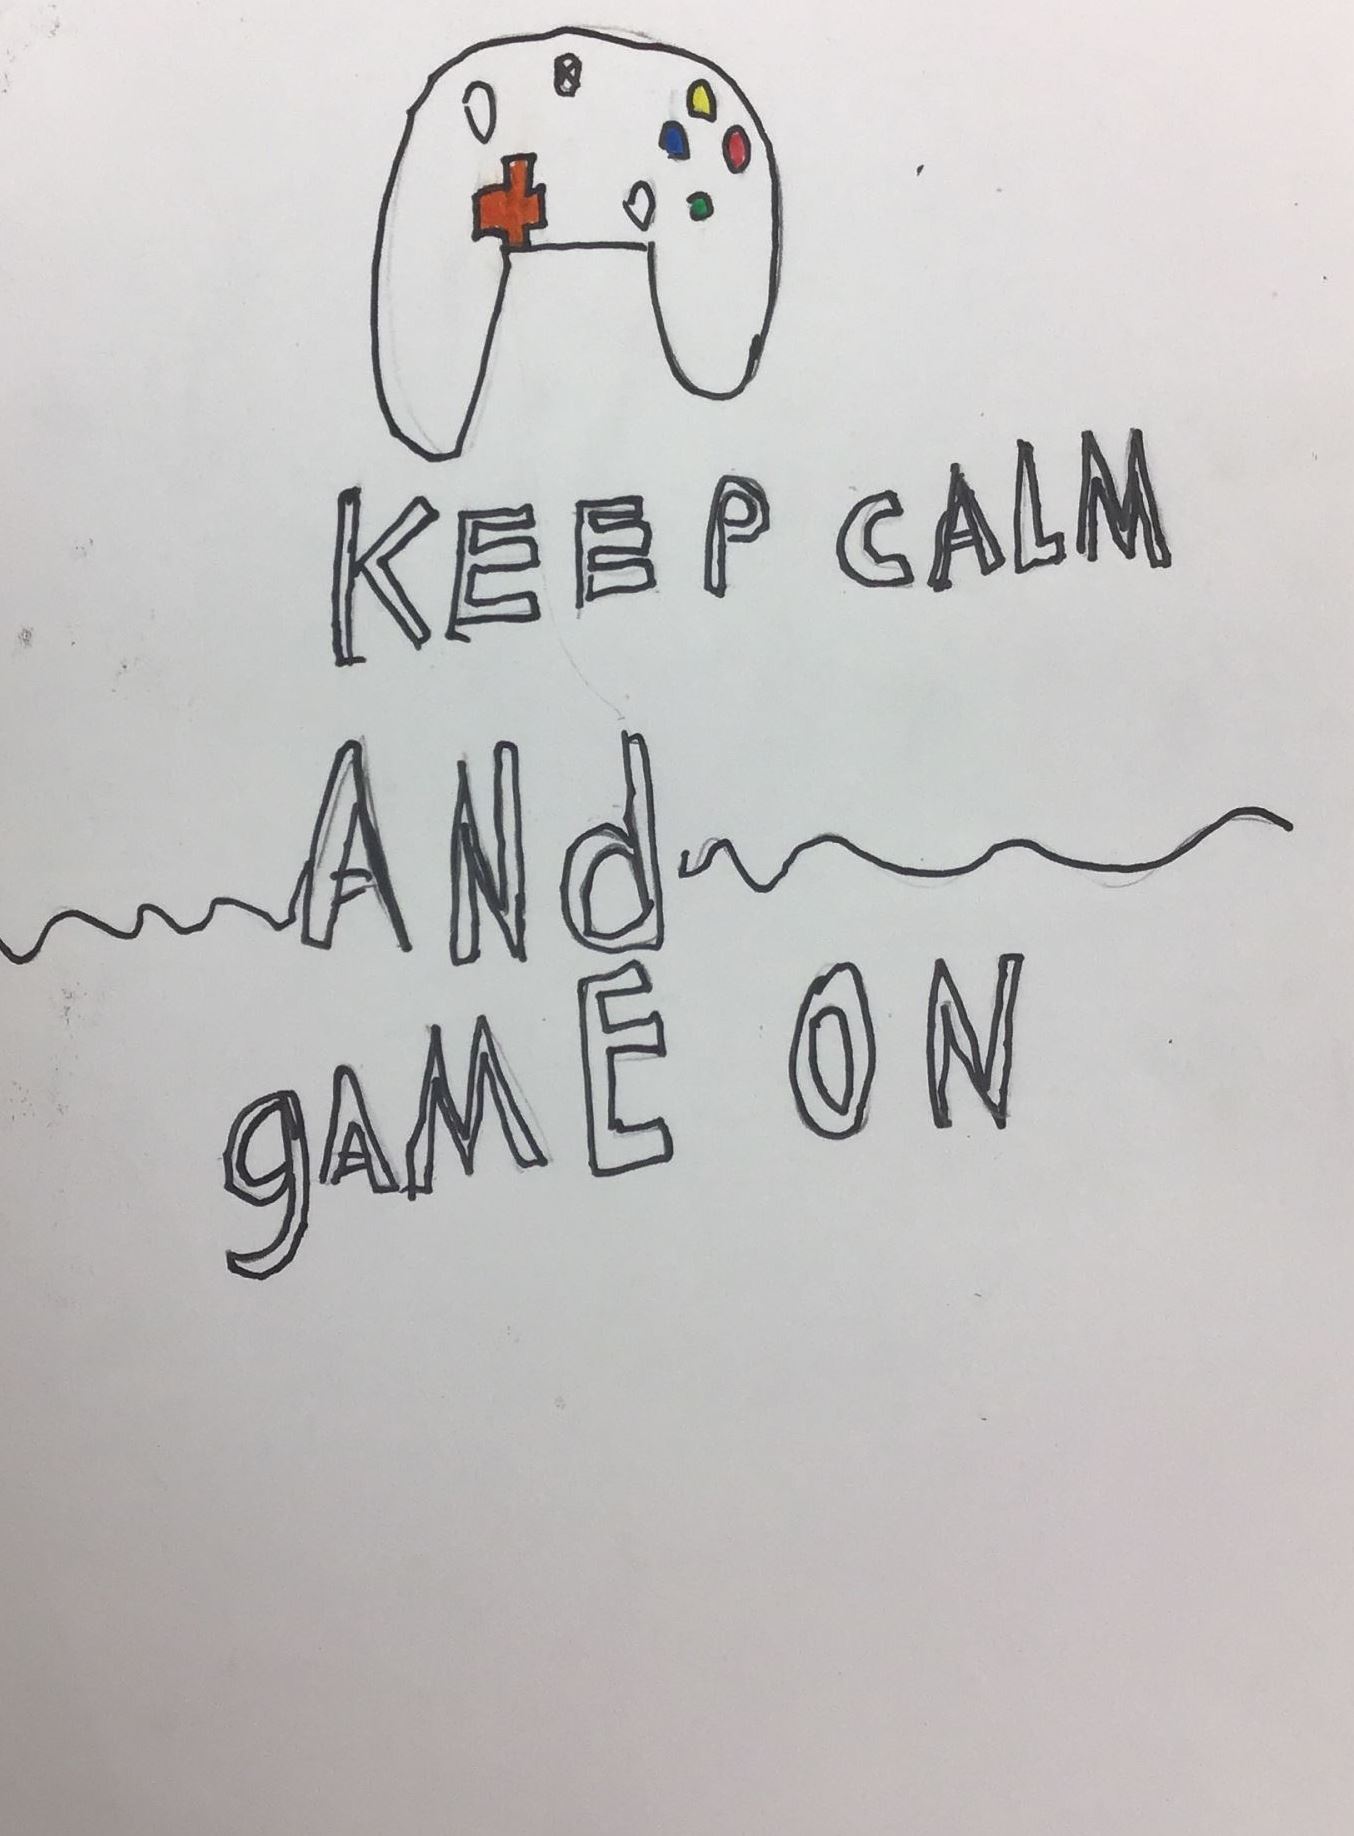 KEEP CALM
ANd
gAME ON